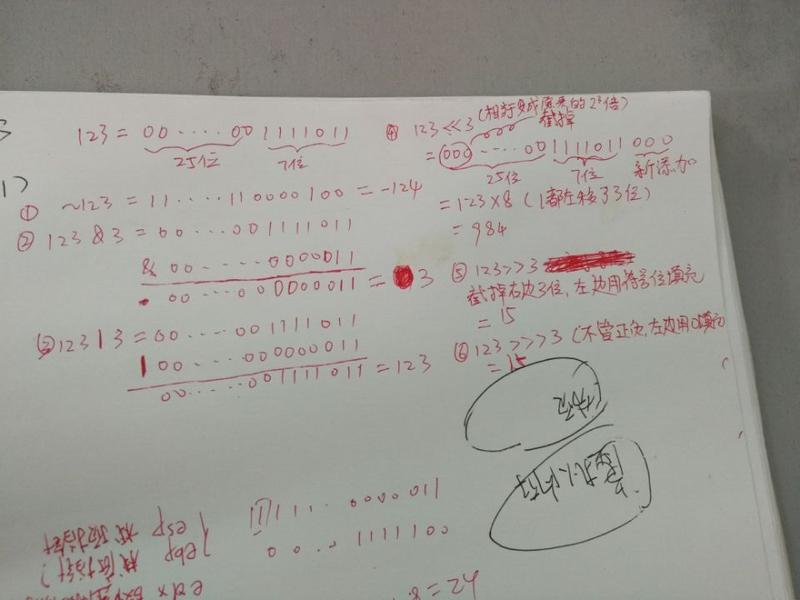 123 = 00.....00 1111011
25位 7位
① ~123 = 11.....110000100 = -124
② 123 & 3 = 00.....001111011
& 00.......0000011
00.....000000011 = 3
③ 123 | 3 = 00.....001111011
| 00.....000000011
00......001111011 = 123
④ 123 << 3 (相当于变成原来的2³倍)
截掉
= 000.....00 1111011 000
25位 7位 新添加
= 123×8 (1都左移了3位)
= 984
⑤ 123>>3
截掉右边3位,左边用符号位填充
= 15
⑥ 123 >>> 3 (不管正负,左边用0填充
= 15
11111..0000011
00..1111100
esp 栈顶指针
ebp 栈底指针?
edx
8 = 24